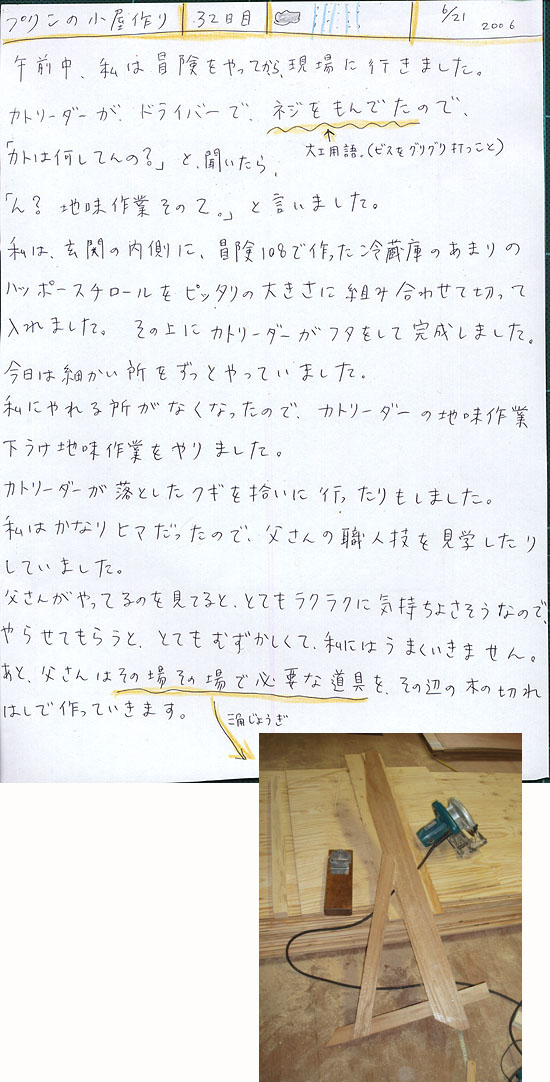 プリンの小屋作り 32日目 6/21 2006
午前中、私は冒険をやってから、現場に行きました。
カトリーダーが、ドライバーで、ネジをもんでたので、
大工用語。(ビスをグリグリ打つこと)
「カトは何してんの?」と、聞いたら、
「ん? 地味作業その2。」と言いました。
私は、玄関の内側に、冒険108で作った冷蔵庫のあまりの
ハッポースチロールをピッタリの大きさに組み合わせて切って
入れました。その上にカトリーダーがフタをして完成しました。
今日は細かい所をずっとやっていました。
私にやれる所がなくなったので、カトリーダーの地味作業
下うけ地味作業をやりました。
カトリーダーが落としたクギを拾いに行ったりもしました。
私はかなりヒマだったので、父さんの職人技を見学したり
していました。
父さんがやってるのを見てると、とてもラクラクに気持ちよさそうなので、
やらせてもらうと、とてもむずかしくて、私にはうまくいきません。
あと、父さんはその場その場で必要な道具を、その辺の木の切れ
はしで作っていきます。
三角じょうぎ